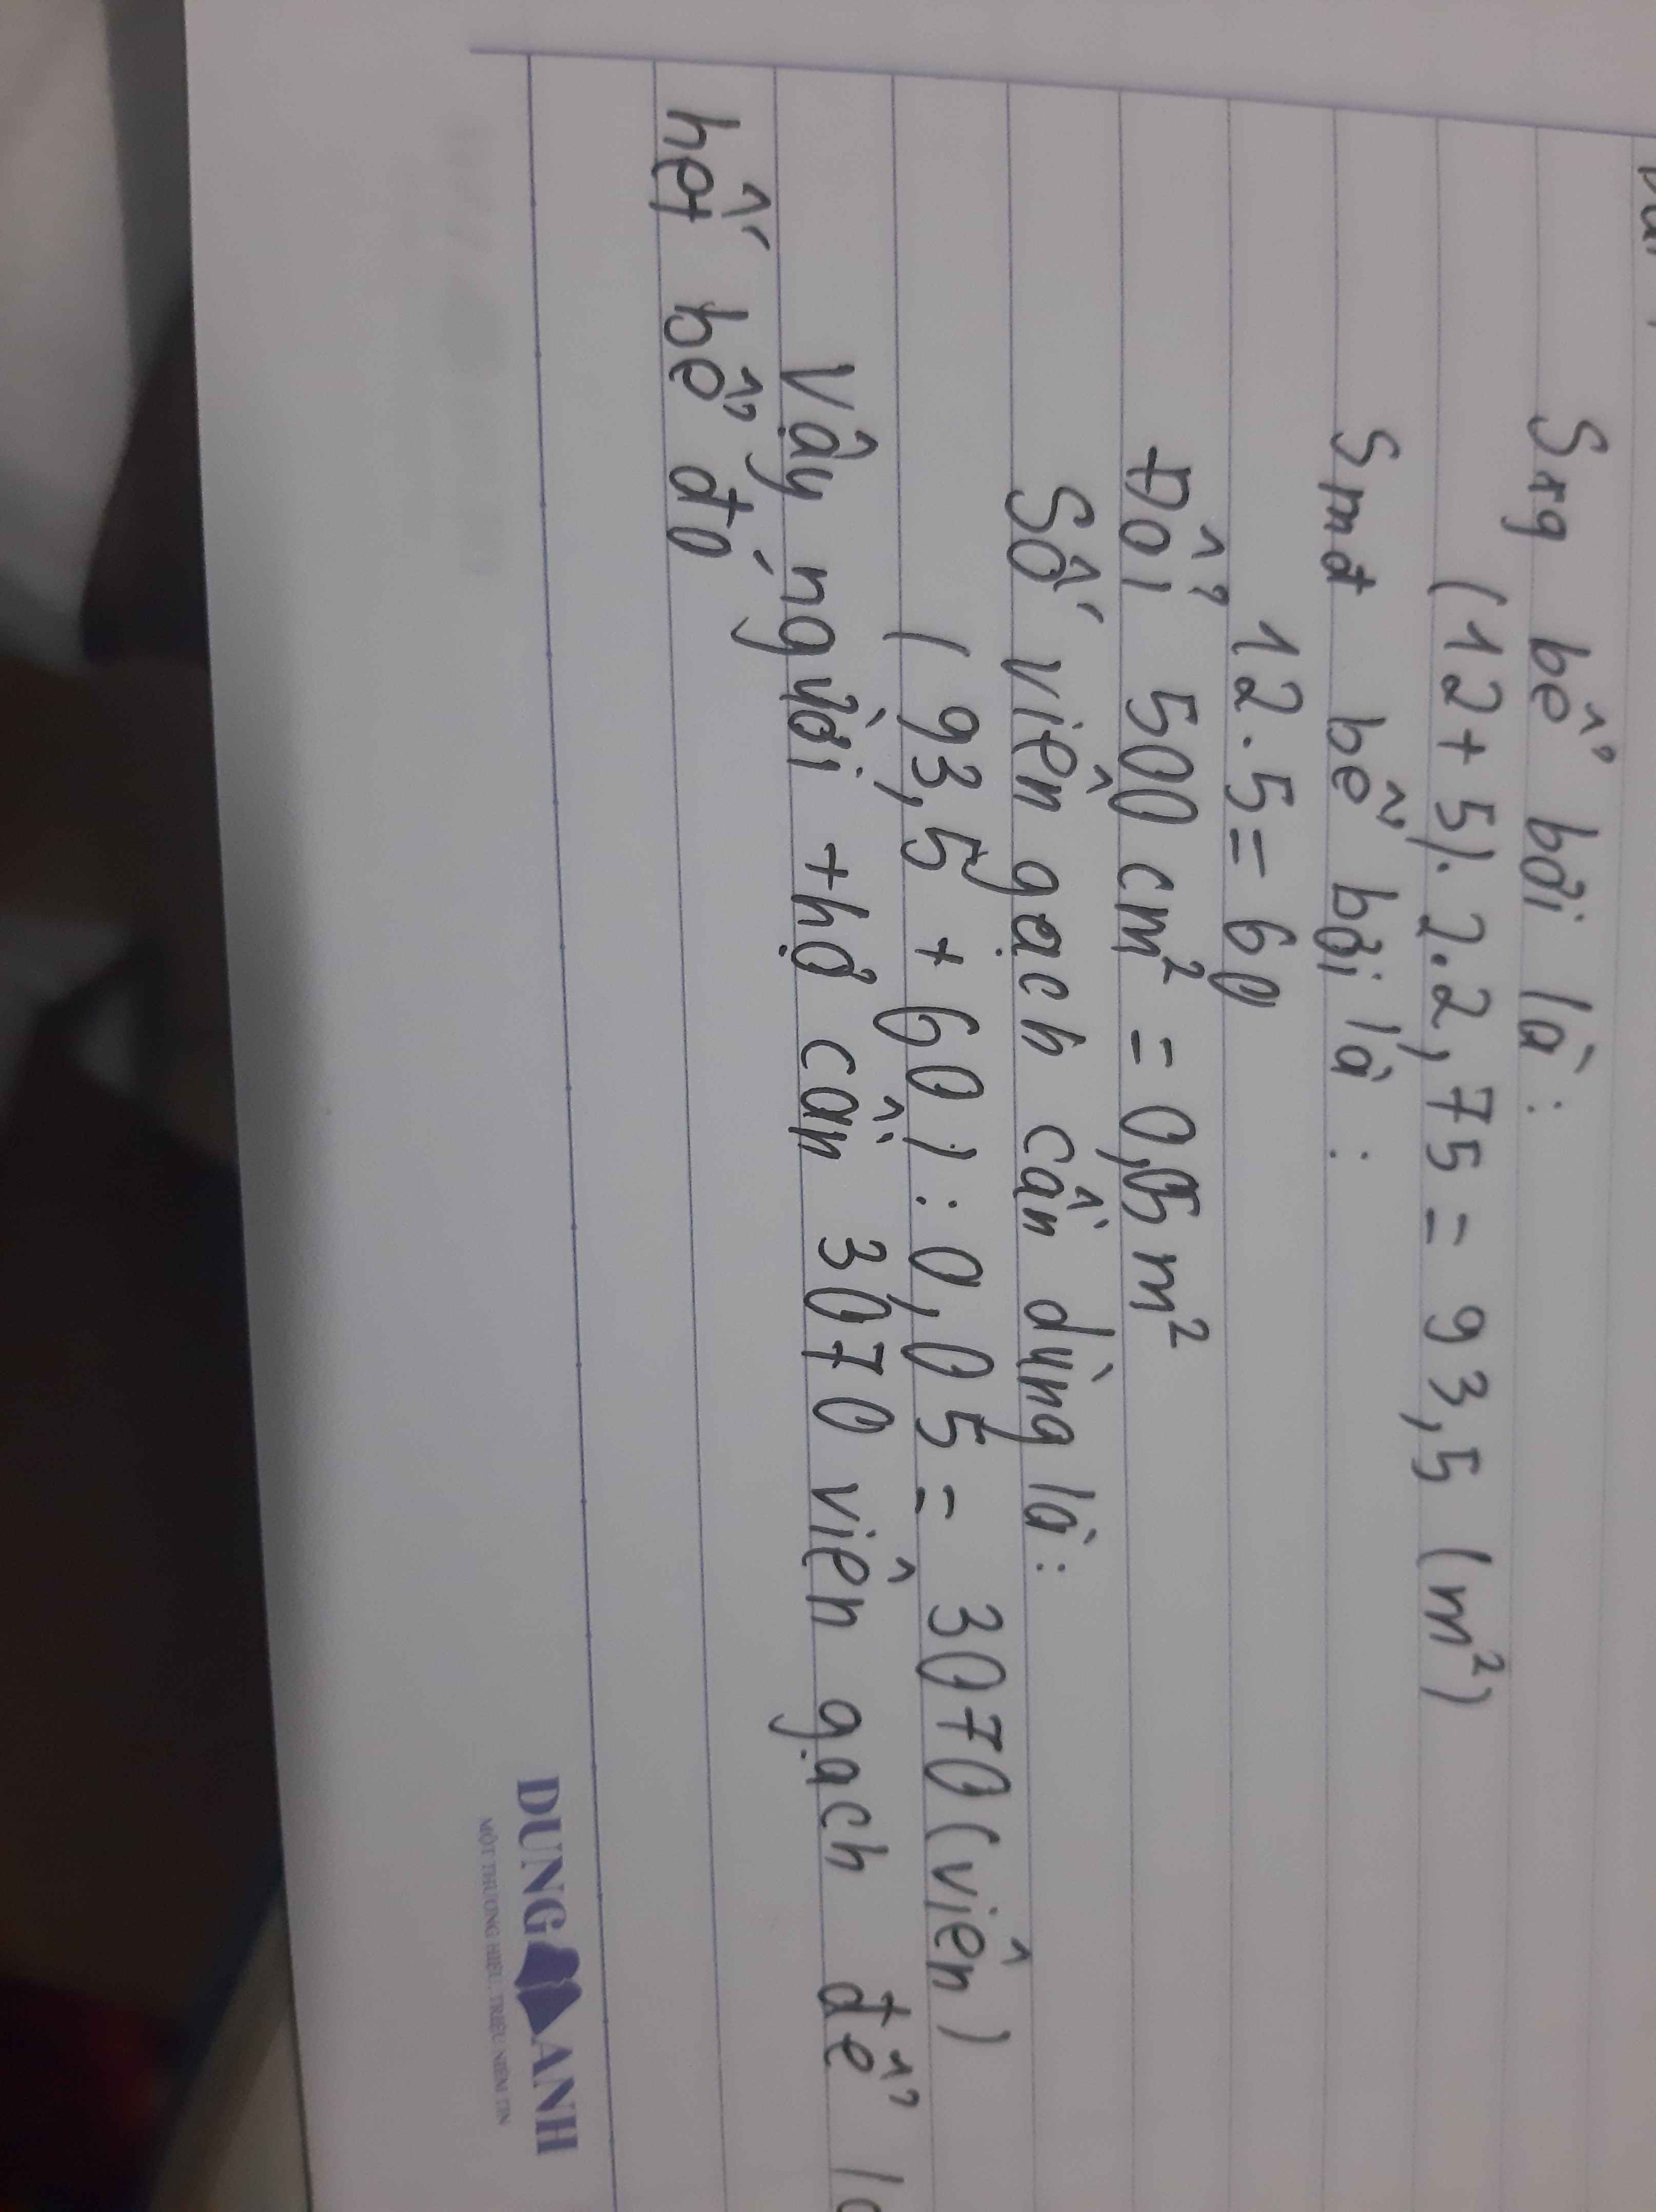 Sxq bể bơi là:
(12+5).2.2,75 = 93,5 (m²)
Smđ bể bơi là :
12.5=60
Đổi 500 cm² = 0,05 m²
Số viên gạch cần dùng là:
( 93,5 + 60 ) : 0,05 = 3070 (viên)
Vậy người thợ cần 3070 viên gạch để
hết bể đó
DUNG ANH
MỘT THƯƠNG HIỆU, TRIỆU NIỀM TIN